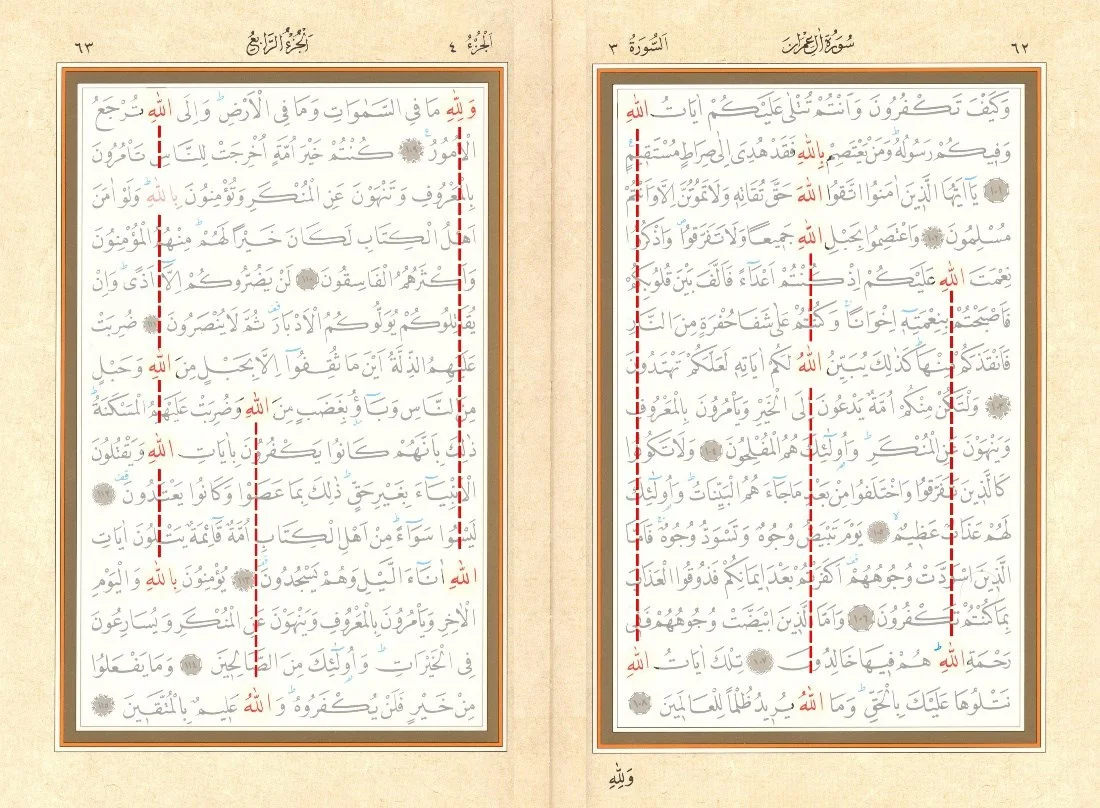 ٦٢ سُورَةُ اٰلِ عِمْرٰنَ اَلسُّورَةُ ٣
وَكَيْفَ تَكْفُرُونَ وَاَنْتُمْ تُتْلٰى عَلَيْكُمْ اٰيَاتُ اللّٰهِ
وَفِيكُمْ رَسُولُهُ وَمَنْ يَعْتَصِمْ بِاللّٰهِ فَقَدْ هُدِىَ اِلٰى صِرَاطٍ مُسْتَقِيمٍ
١٠١ يَٓا اَيُّهَا الَّذِينَ اٰمَنُوا اتَّقُوا اللّٰهَ حَقَّ تُقَاتِهٖ وَلَا تَمُوتُنَّ اِلَّا وَاَنْتُمْ
مُسْلِمُونَ ١٠٢ وَاعْتَصِمُوا بِحَبْلِ اللّٰهِ جَمِيعًا وَلَا تَفَرَّقُوا وَاذْكُرُوا
نِعْمَتَ اللّٰهِ عَلَيْكُمْ اِذْ كُنْتُمْ اَعْدَٓاءً فَاَلَّفَ بَيْنَ قُلُوبِكُمْ
فَاَصْبَحْتُمْ بِنِعْمَتِهٖٓ اِخْوَانًا وَكُنْتُمْ عَلٰى شَفَا حُفْرَةٍ مِنَ النَّارِ
فَاَنْقَذَكُمْ مِنْهَا كَذٰلِكَ يُبَيِّنُ اللّٰهُ لَكُمْ اٰيَاتِهٖ لَعَلَّكُمْ تَهْتَدُونَ
١٠٣ وَلْتَكُنْ مِنْكُمْ اُمَّةٌ يَدْعُونَ اِلَى الْخَيْرِ وَيَأْمُرُونَ بِالْمَعْرُوفِ
وَيَنْهَوْنَ عَنِ الْمُنْكَرِ وَاُولٰٓئِكَ هُمُ الْمُفْلِحُونَ ١٠٤ وَلَا تَكُونُوا
كَالَّذِينَ تَفَرَّقُوا وَاخْتَلَفُوا مِنْ بَعْدِ مَا جَٓاءَهُمُ الْبَيِّنَاتُ وَاُولٰٓئِكَ
لَهُمْ عَذَابٌ عَظِيمٌ ١٠٥ يَوْمَ تَبْيَضُّ وُجُوهٌ وَتَسْوَدُّ وُجُوهٌ فَاَمَّا
الَّذِينَ اسْوَدَّتْ وُجُوهُهُمْ اَكَفَرْتُمْ بَعْدَ اِيمَانِكُمْ فَذُوقُوا الْعَذَابَ
بِمَا كُنْتُمْ تَكْفُرُونَ ١٠٦ وَاَمَّا الَّذِينَ ابْيَضَّتْ وُجُوهُهُمْ فَفِى
رَحْمَةِ اللّٰهِ هُمْ فِيهَا خَالِدُونَ ١٠٧ تِلْكَ اٰيَاتُ اللّٰهِ
نَتْلُوهَا عَلَيْكَ بِالْحَقِّ وَمَا اللّٰهُ يُرِيدُ ظُلْمًا لِلْعَالَمِينَ ١٠٨
وَلِلّٰهِ
اَلْجُزْءُ ٤ اَلْجُزْءُ الرَّابِعُ ٦٣
وَلِلّٰهِ مَا فِى السَّمٰوَاتِ وَمَا فِى الْاَرْضِ وَاِلَى اللّٰهِ تُرْجَعُ
الْاُمُورُ ١٠٩ كُنْتُمْ خَيْرَ اُمَّةٍ اُخْرِجَتْ لِلنَّاسِ تَأْمُرُونَ
بِالْمَعْرُوفِ وَتَنْهَوْنَ عَنِ الْمُنْكَرِ وَتُؤْمِنُونَ بِاللّٰهِ وَلَوْ اٰمَنَ
اَهْلُ الْكِتَابِ لَكَانَ خَيْرًا لَهُمْ مِنْهُمُ الْمُؤْمِنُونَ
وَاَكْثَرُهُمُ الْفَاسِقُونَ ١١٠ لَنْ يَضُرُّوكُمْ اِلَّٓا اَذًى وَاِنْ
يُقَاتِلُوكُمْ يُوَلُّوكُمُ الْاَدْبَارَ ثُمَّ لَا يُنْصَرُونَ ١١١ ضُرِبَتْ
عَلَيْهِمُ الذِّلَّةُ اَيْنَ مَا ثُقِفُٓوا اِلَّا بِحَبْلٍ مِنَ اللّٰهِ وَحَبْلٍ
مِنَ النَّاسِ وَبَٓاؤُ بِغَضَبٍ مِنَ اللّٰهِ وَضُرِبَتْ عَلَيْهِمُ الْمَسْكَنَةُ
ذٰلِكَ بِاَنَّهُمْ كَانُوا يَكْفُرُونَ بِاٰيَاتِ اللّٰهِ وَيَقْتُلُونَ
الْاَنْبِيَٓاءَ بِغَيْرِ حَقٍّ ذٰلِكَ بِمَا عَصَوْا وَكَانُوا يَعْتَدُونَ ١١٢
لَيْسُوا سَوَٓاءً مِنْ اَهْلِ الْكِتَابِ اُمَّةٌ قَٓائِمَةٌ يَتْلُونَ اٰيَاتِ
اللّٰهِ اٰنَٓاءَ الَّيْلِ وَهُمْ يَسْجُدُونَ ١١٣ يُؤْمِنُونَ بِاللّٰهِ وَالْيَوْمِ
الْاٰخِرِ وَيَأْمُرُونَ بِالْمَعْرُوفِ وَيَنْهَوْنَ عَنِ الْمُنْكَرِ وَيُسَارِعُونَ
فِى الْخَيْرَاتِ وَاُولٰٓئِكَ مِنَ الصَّالِحِينَ ١١٤ وَمَا يَفْعَلُوا
مِنْ خَيْرٍ فَلَنْ يُكْفَرُوهُ وَاللّٰهُ عَلِيمٌ بِالْمُتَّقِينَ ١١٥